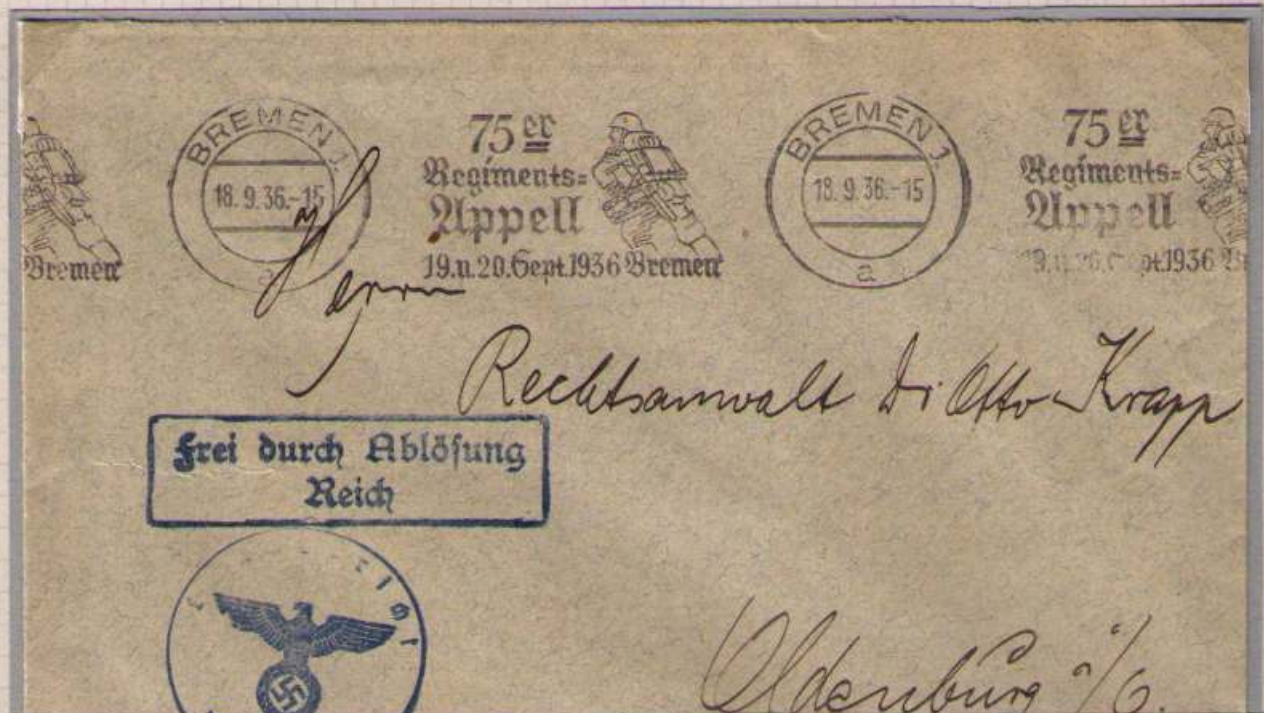 Bremen
BREMEN 1
18.9.36.-15
a
75er
Regiments=
Appell
19.u.20.Sept.1936 Bremen
BREMEN 1
18.9.36.-15
a
75er
Regiments=
Appell
19.u.20.Sept.1936
Herrn
Rechtsanwalt Dr Otto Krapp
Frei durch Ablösung
Reich
Oldenburg i/O.